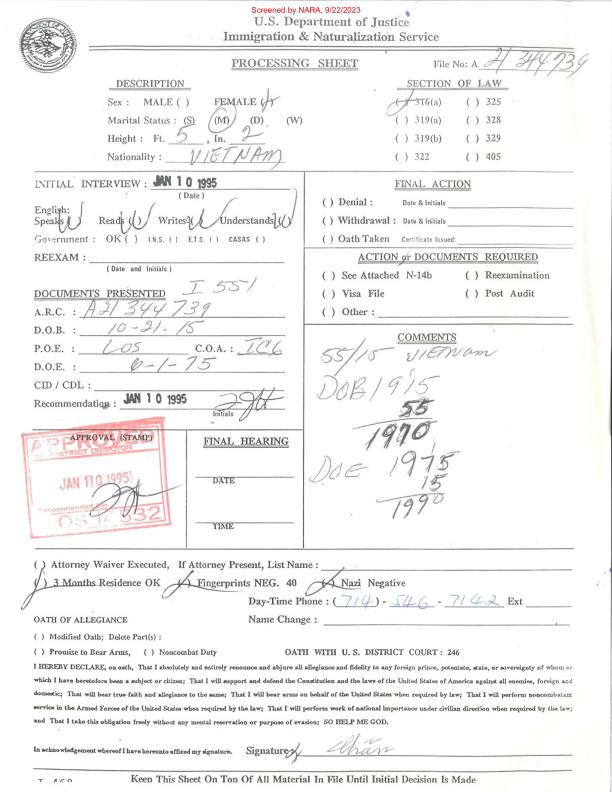 Screened by NARA, 9/22/2023
U.S. Department of Justice
Immigration & Naturalization Service
PROCESSING SHEET
File No: A 21 344 739
DESCRIPTION
Sex : MALE ( ) FEMALE ( )
Marital Status : (S) (M) (D) (W)
Height : Ft. 5 , In. 2
Nationality : VIETNAM
SECTION OF LAW
( ) 316(a) ( ) 325
( ) 319(a) ( ) 328
( ) 319(b) ( ) 329
( ) 322 ( ) 405
INITIAL INTERVIEW : JAN 10 1995
( Date )
English:
Speaks ( ) Reads ( ) Writes ( ) Understands ( )
Government : OK ( ) I.N.S. ( ) E.T.S. ( ) CASAS ( )
REEXAM :
( Date and Initials )
DOCUMENTS PRESENTED I 551
A.R.C. : A21 344 739
D.O.B. : 10-21-15
P.O.E. : LOS C.O.A. : IC6
D.O.E. : 6-1-75
CID / CDL :
Recommendation : JAN 10 1995
Initials
FINAL ACTION
( ) Denial : Date & Initials
( ) Withdrawal : Date & Initials
( ) Oath Taken Certificate Issued:
ACTION or DOCUMENTS REQUIRED
( ) See Attached N-14b ( ) Reexamination
( ) Visa File ( ) Post Audit
( ) Other :
COMMENTS
55/15 VIETNAM
DOB 1915
55
1970
DOE 1975
15
1990
APPROVAL (STAMP)
APPROVED
DISTRICT DIRECTOR
JAN 10 1995
Recommended
LOS 14332
FINAL HEARING
DATE
TIME
( ) Attorney Waiver Executed, If Attorney Present, List Name :
( ) 3 Months Residence OK ( ) Fingerprints NEG. 40 ( ) Nazi Negative
Day-Time Phone : (714) - 546 - 7142 Ext
OATH OF ALLEGIANCE Name Change :
( ) Modified Oath; Delete Part(s) :
( ) Promise to Bear Arms, ( ) Noncombat Duty OATH WITH U. S. DISTRICT COURT : 246
I HEREBY DECLARE, on oath, That I absolutely and entirely renounce and abjure all allegiance and fidelity to any foreign prince, potentate, state, or sovereignty of whom or
which I have heretofore been a subject or citizen; That I will support and defend the Constitution and the laws of the United States of America against all enemies, foreign and
domestic; That will bear true faith and allegiance to the same; That I will bear arms on behalf of the United States when required by law; That I will perform noncombatant
service in the Armed Forces of the United States when required by the law; That I will perform work of national importance under civilian direction when required by the law;
and That I take this obligation freely without any mental reservation or purpose of evasion; SO HELP ME GOD.
In acknowledgement whereof I have hereunto affixed my signature. Signature
Keep This Sheet On Top Of All Material In File Until Initial Decision Is Made